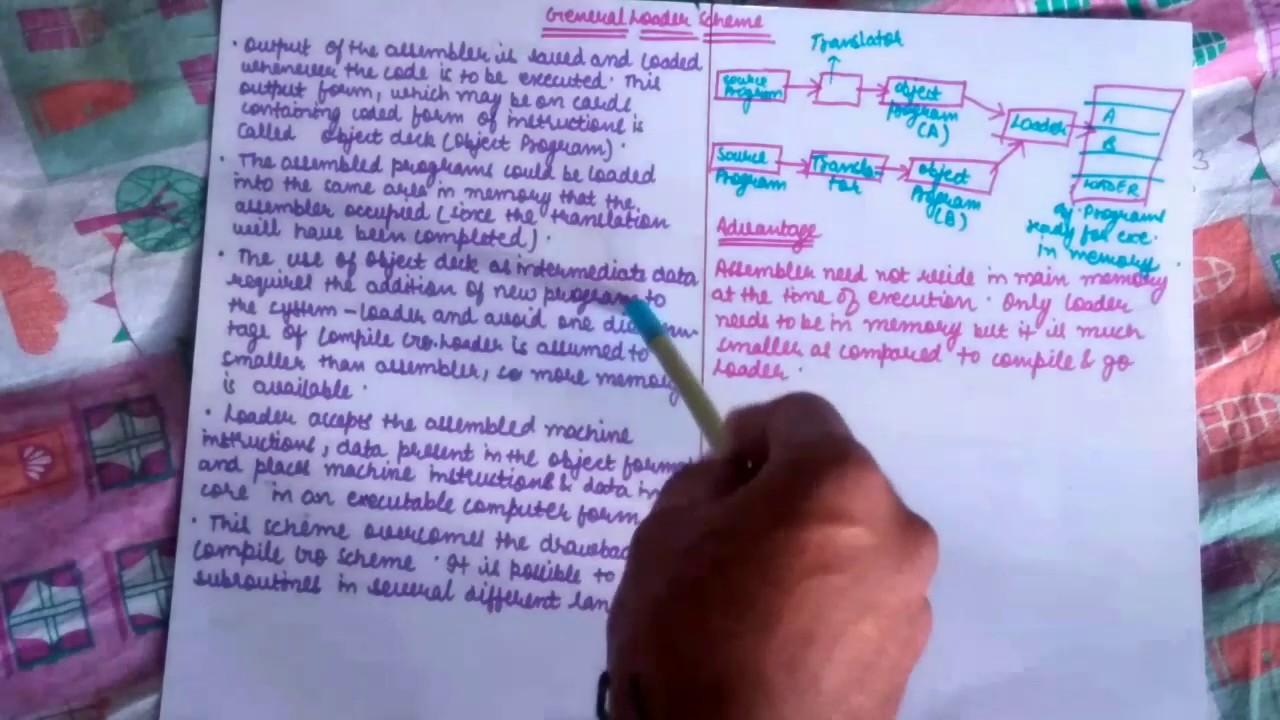 General Loader Scheme
• Output of the assembler is saved and loaded
whenever the code is to be executed. This
output form, which may be on cards
containing coded form of instructions is
called object deck (Object Program).
• The assembled programs could be loaded
into the same area in memory that the
assembler occupied (since the translation
will have been completed).
• The use of object deck as intermediate data
requires the addition of new program to
the system - loader and avoid one
tage of Compile Go. Loader is assumed to
smaller than assembler, so more memory
is available.
• Loader accepts the assembled machine
instructions, data present in the object format
and places machine instructions & data in
core in an executable computer form
• This scheme overcomes the
Compile Go scheme. It is possible to
subroutines in several different
Translator
Source
Program
object
program
(A)
Loader
A
B
LOADER
Source
Program
Transla
tor
object
Program
(B)
Programs
ready for exe.
in memory.
Advantage
Assembler need not reside in main memory
at the time of execution. Only loader
needs to be in memory but it is much
smaller as compared to compile & go
Loader.